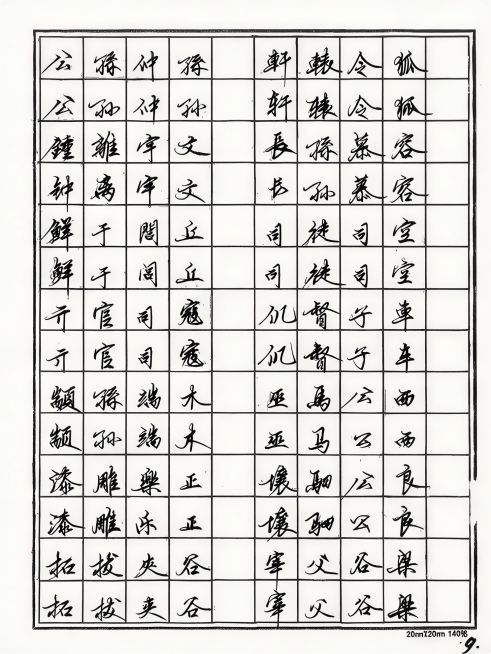 公孫仲孫 軒轅令狐
公孙仲孙 轩辕令狐
鍾離宇文 長孫慕容
钟离宇文 长孙慕容
鮮于閭丘 司徒司空
鲜于闾丘 司徒司空
亓官司寇 仉督子車
亓官司寇 仉督子车
顓孫端木 巫馬公西
颛孙端木 巫马公西
漆雕樂正 壤駟公良
漆雕乐正 壤驷公良
拓拔夾谷 宰父谷梁
拓拔夹谷 宰父谷梁
20mmX20mm 140格
9.